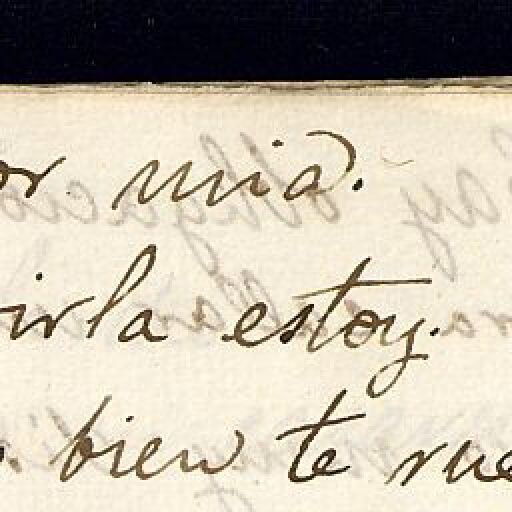 or mia.
irla estoy.
. bien te rue